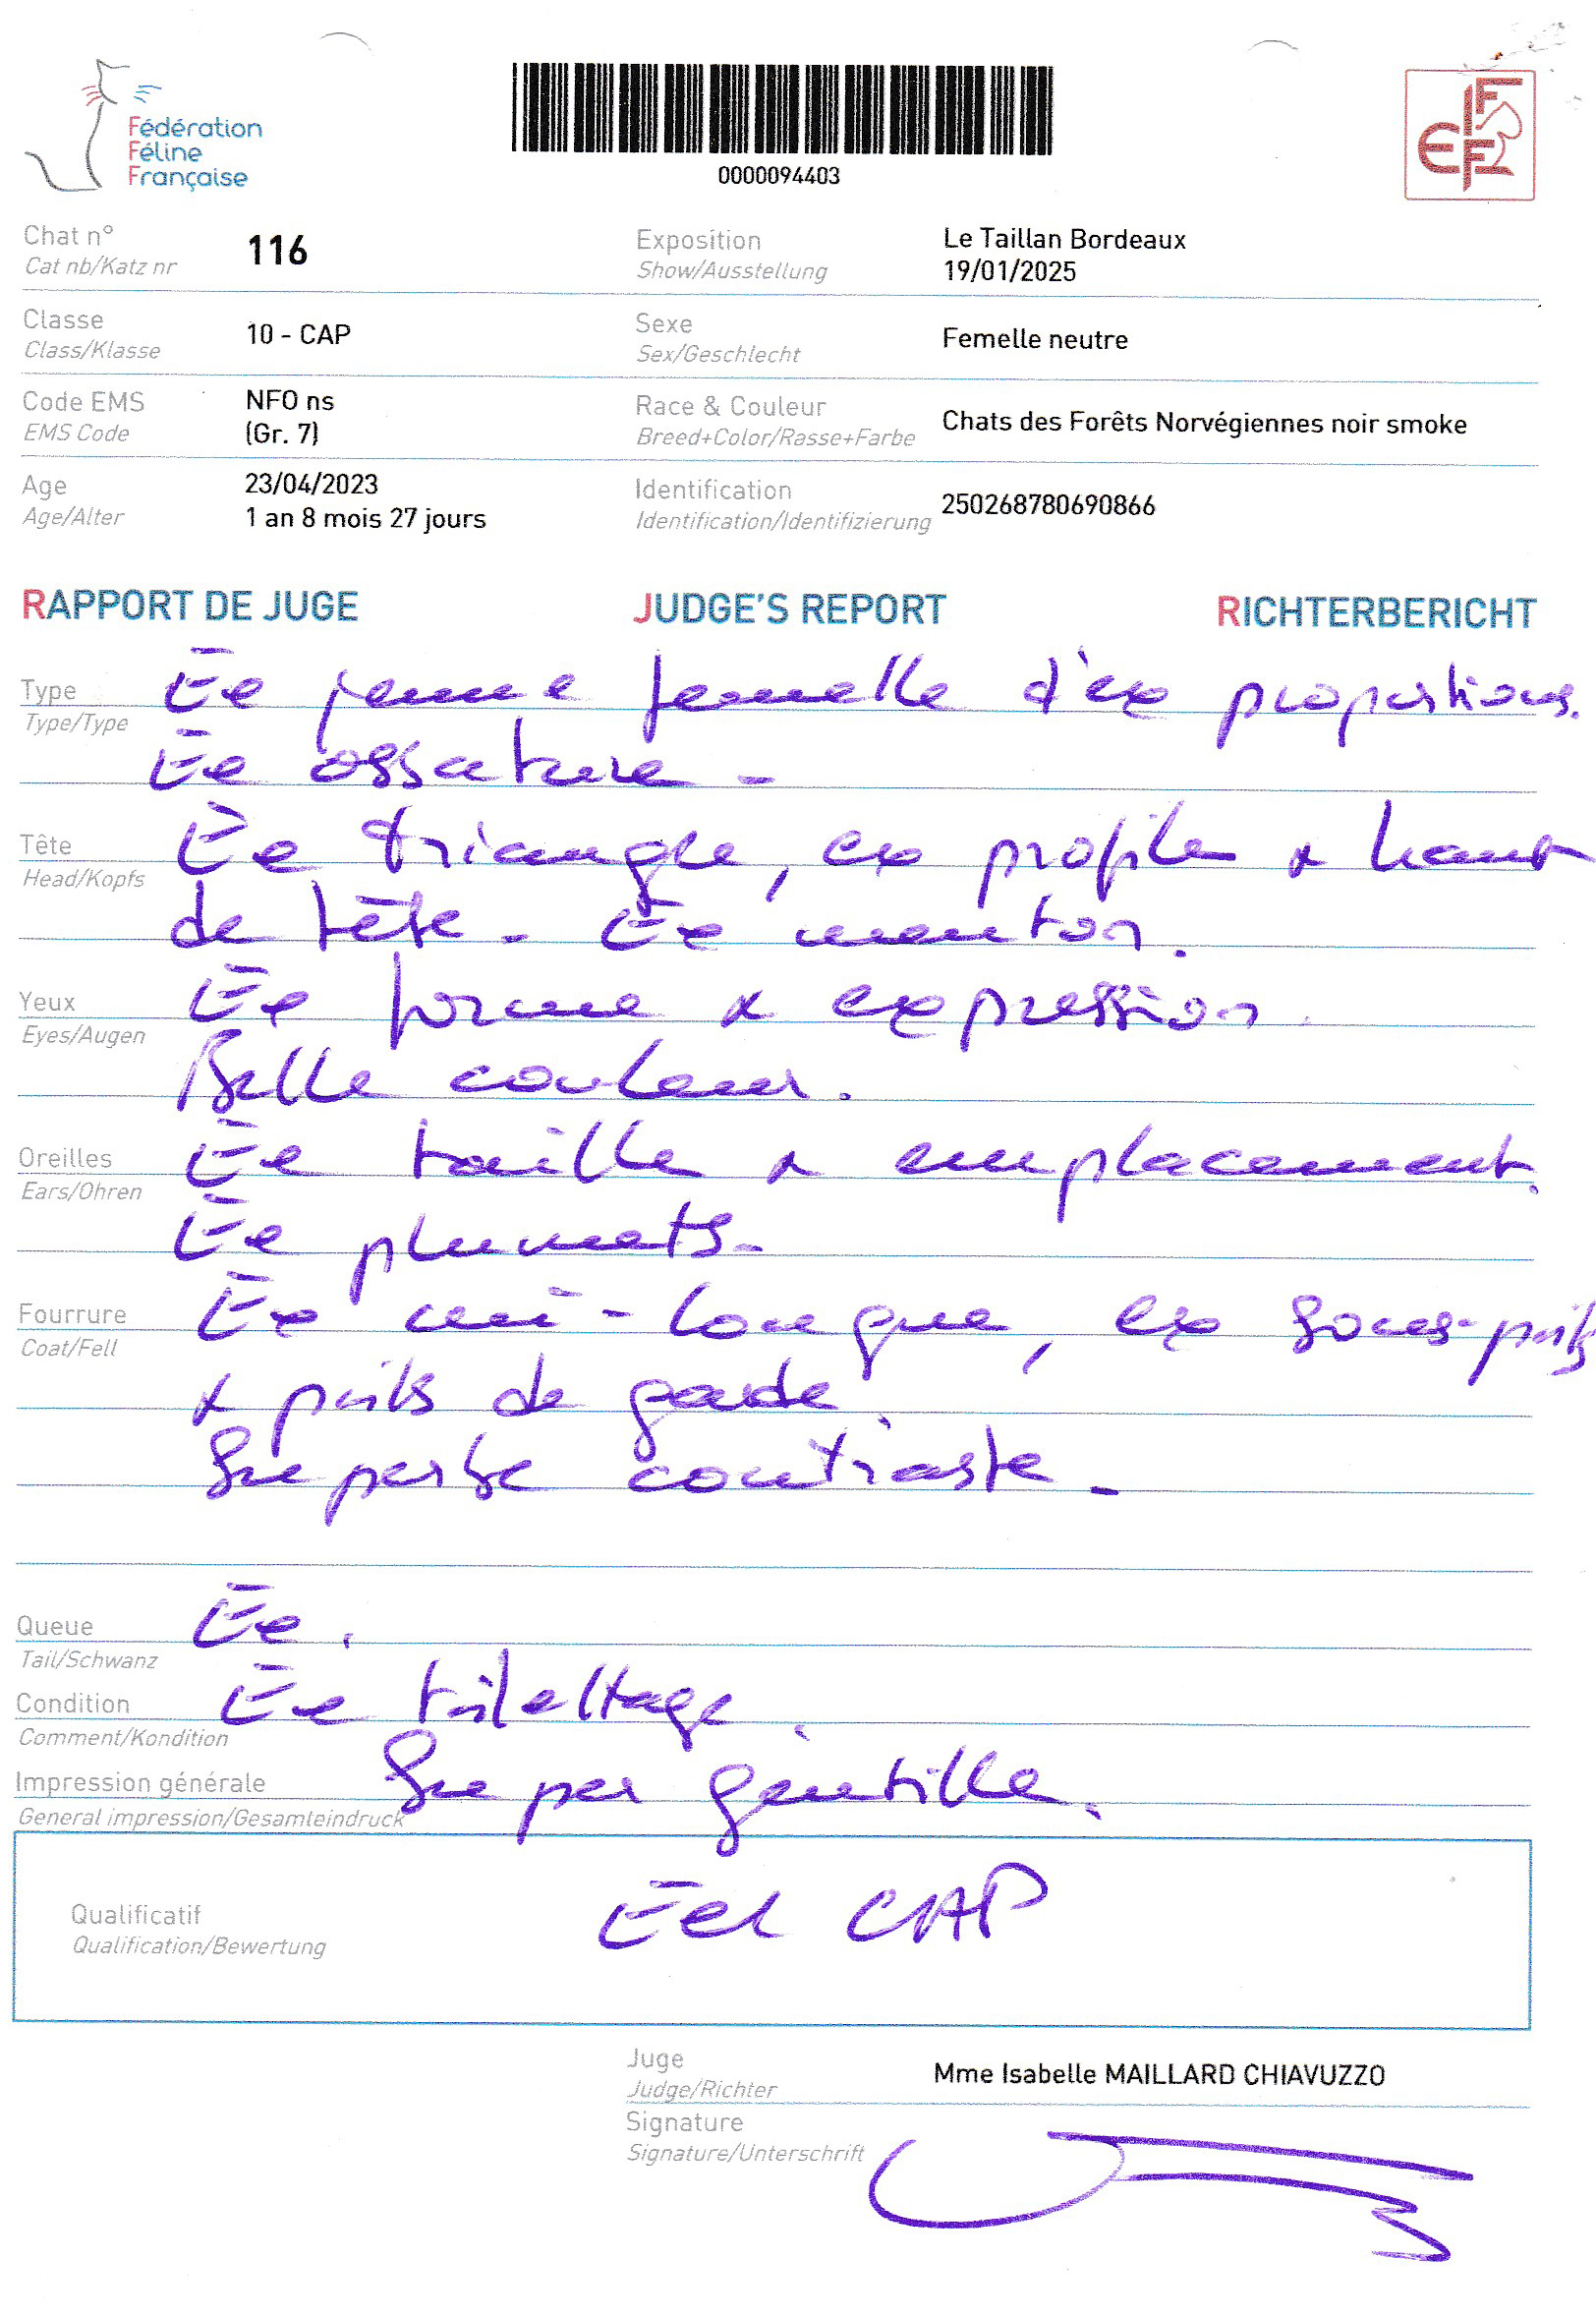 Fédération
Féline
Française
FIFE
0000094403
Chat n°
Cat nb/Katz nr
116
Exposition
Show/Ausstellung
Le Taillan Bordeaux
19/01/2025
Classe
Class/Klasse
10 - CAP
Sexe
Sex/Geschlecht
Femelle neutre
Code EMS
EMS Code
NFO ns
(Gr. 7)
Race & Couleur
Breed+Color/Rasse+Farbe
Chats des Forêts Norvégiennes noir smoke
Age
Age/Alter
23/04/2023
1 an 8 mois 27 jours
Identification
Identification/Identifizierung
250268780690866
RAPPORT DE JUGE JUDGE'S REPORT RICHTERBERICHT
Type
Type/Type
Ex jeune femelle d'ex proportions.
Ex ossature -
Tête
Head/Kopfs
Ex triangle, ex profil & haut
de tête - Ex menton.
Yeux
Eyes/Augen
Ex forme & expression.
Belle couleur.
Oreilles
Ears/Ohren
Ex taille & emplacement.
Ex plumets -
Fourrure
Coat/Fell
Ex mi-longue, ex sous-poils
& poils de garde
Superbe contraste -
Queue
Tail/Schwanz
Ex.
Condition
Comment/Kondition
Ex toilettage.
Impression générale
General impression/Gesamteindruck
Super gentille.
Qualificatif
Qualification/Bewertung
CAP
Juge
Judge/Richter
Mme Isabelle MAILLARD CHIAVUZZO
Signature
Signature/Unterschrift